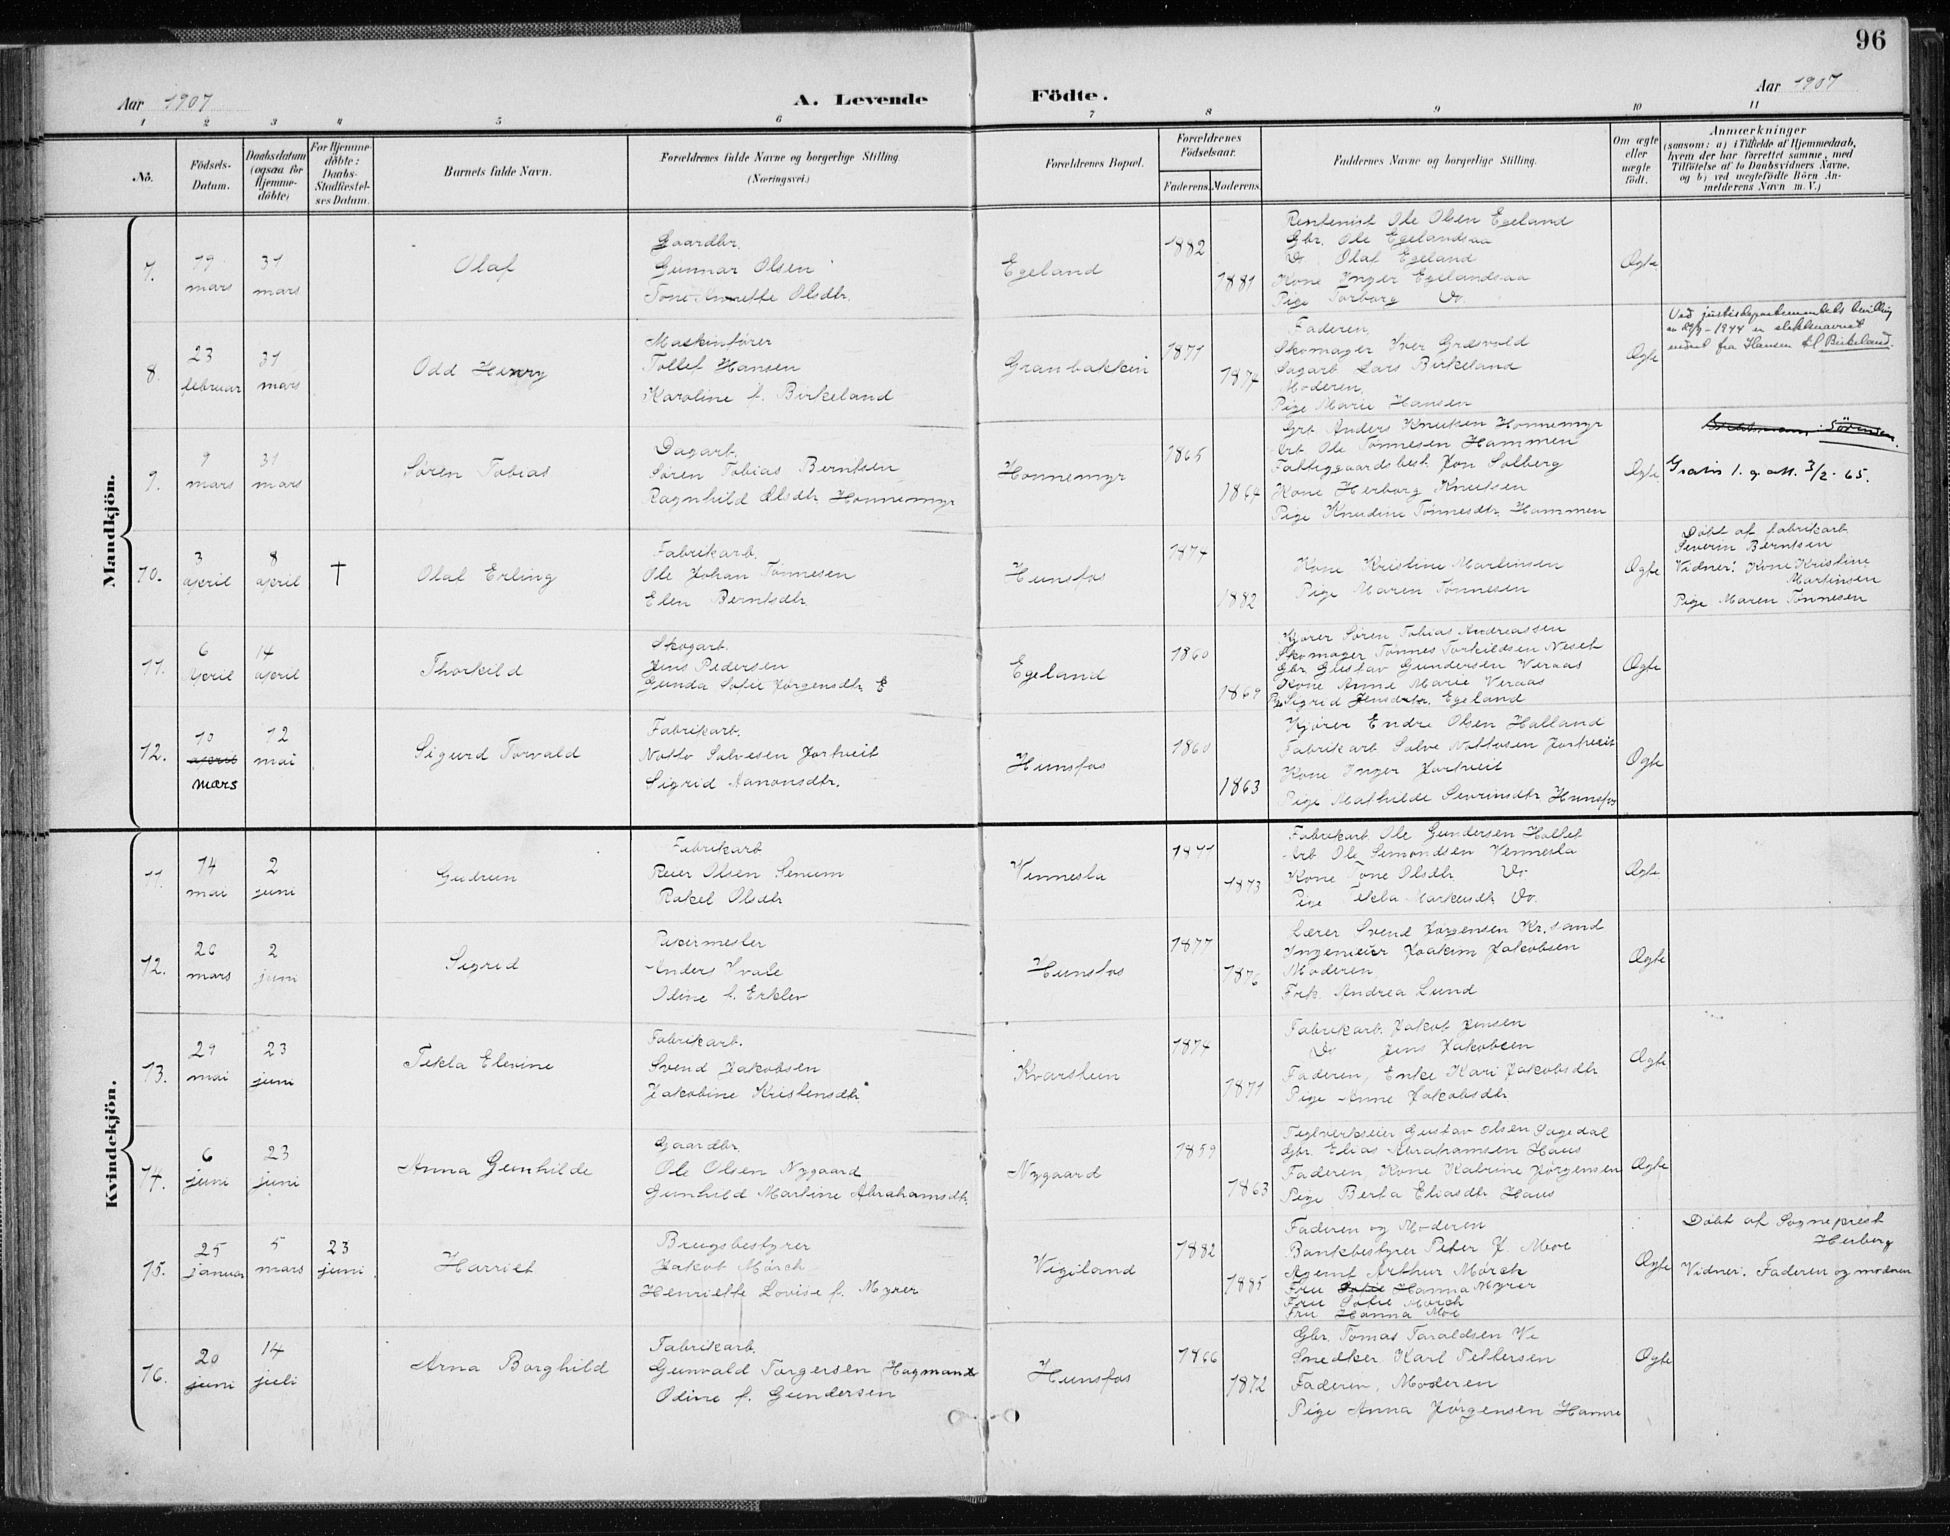 96
Aar 1907
A. Levende Födte.
Aar 1907
1 2 3 4 5 6 7 8 9 10 11
No.
Födsels-Datum.
Daabsdatum (ogsaa for Hjemme-döbte)
For Hjemme-döbte: Daabs-Stadfæstel-ses Datum.
Barnets fulde Navn.
Forældrenes fulde Navne og borgerlige Stilling (Næringsvei.)
Forældrenes Bopæl.
Forældrenes Födselsaar.
Faderens. Moderens.
Faddernes Navne og borgerlige Stilling.
Om ægte eller uægte födt.
Anmærkninger
(saasom: a) i Tilfælde af Hjemmedaab, hvem der har forrettet samme, med Tilföielse af to Daabsvidners Navne, og b) ved uægtefödte Börn An-melderens Navn m. V.)
Mandkjön.
7.
19 mars
31 mars
Olaf
Gaardbr.
Gunnar Olsen
Tone Annette Olsdtr.
Egeland
1882
1881
Rentenist Ole Olsen Egeland
Gbr. Ole Egelandsaa
Do Olaf Egeland
Kone Inger Egelandsaa
Pige Torborg Do.
Ægte
8.
23 februar
31 mars
Odd Henry
Maskinfører
Tollef Hansen
Karoline f. Birkeland
Granbakken
1871
1874
Faderen,
Skomager Iver Græsvold
Sagarb. Lars Birkeland
Moderen,
Pige Marie Hansen
Ægte
Ved justisdepartementets bevilling
1944 er slektsnavnet
endret fra Hansen til Birkeland.
9.
9 mars
31 mars
Søren Tobias
Dagarb.
Søren Tobias Berntsen
Ragnhild Olsdtr Honnemyr
Honnemyr
1865
1864
Gbr. Anders Knutsen Honnemyr
Arb. Ole Tønnesen Hammen
Fattiggaardsbest. Jon Solberg
Kone Herborg Knutsen
Pige Knudine Tønnesdtr. Hammen
Ægte
Sörensen.
Gratis 1. g. att. 3/2-65.
10.
3 april
8 april
†
Olaf Erling
Fabrikarb.
Ole Johan Tønnesen
Elen Berntsdtr.
Hunsfos
1874
1882
Kone Kristine Martinsen
Pige Maren Tønnesen
Ægte
Døbt af fabrikarb.
Severin Berntsen
Vidner: Kone Kristine
Martinsen
Pige Maren Tønnesen
11.
6 april
14 april
Thorkild
Skogarb.
Jens Pedersen
Gunda Sofie Jørgensdtr. E
Egeland
1860
1869
Kjører Søren Tobias Andreassen
Skomager Tønnes Torkildsen Neset
Gbr Gustav Gundersen Veraas
Kone Anne Marie Veraas
Pige Sigrid Jensdtr. Egeland
Ægte
12.
10 april
mars
12 mai
Sigurd Torvald
Fabrikarb.
Notto Salvesen Jortveit
Sigrid Aanonsdtr.
Hunsfos
1860
1863
Kjører Endre Olsen Halland
Fabrikarb. Salve Nottosen Jortveit
Kone Inger Jortveit
Pige Mathilde Sevrinsdtr Hunsfos
Ægte
Kvindekjön.
11.
14 mai
2 juni
Gudrun
Fabrikarb
Reier Olsen Senum
Rakel Olsdtr
Vennesla
1871
1873
Fabrikarb. Ole Gundersen Hallet
Arb Ole Simondsen Vennesla
Kone Tone Olsdtr Do
Pige Tekla Markusdtr Do.
Ægte
12.
26 mars
2 juni
Sigrid
Papirmester
Anders Hvale
Oline f. Erklev
Hunsfos
1877
1876
Lærer Svend Jørgensen Kr.sand
Ingeniør Joakim Jakobsen
Moderen
Frk. Andrea Lund
Ægte
13.
29 mai
23 juni
Tekla Elevine
Fabrikarb.
Svend Jakobsen
Jakobine Kristensdtr
Kvarstein
1874
1871
Fabrikarb. Jakob Jensen
Do Jens Jakobsen
Faderen, Enke Kari Jakobsdtr
Pige Anne Jakobsdtr
Ægte
14.
6 juni
23 juni
Anna Gunhilde
Gaardbr.
Ole Olsen Nygaard
Gunhild Martine Abrahamsdtr.
Nygaard
1859
1863
Teglverkseier Gustav Olsen Sagedal
Gbr. Elias Abrahamsen Haus
Faderen, Kone Katrine Jørgensen
Pige Berta Eliasdtr Haus
Ægte
15.
25 januar
5 mars
23 juni
Harriet
Brugsbestyrer
Jakob Mørch
Henriette Lovise f. Myrer
Vigeland
1882
1885
Faderen og Moderen
Bankbestyrer Peter J. Moe
Agent Arthur Mørch
Fru Sofie Hanna Myrer
Fru Sofie Mørch
Fru Hanna Moe
Ægte
Døbt af Sogneprest
Herberg
Vidner: Faderen og moderen
16.
20 juni
14 juli
Arna Borghild
Fabrikarb.
Gunvald Torgersen (Hagman)
Odine f. Gundersen
Hunsfos
1866
1872
Gbr. Tomas Taraldsen Ve
Snedker Karl Pettersen
Faderen, Moderen
Pige Anna Jørgensen Hamre
Ægte